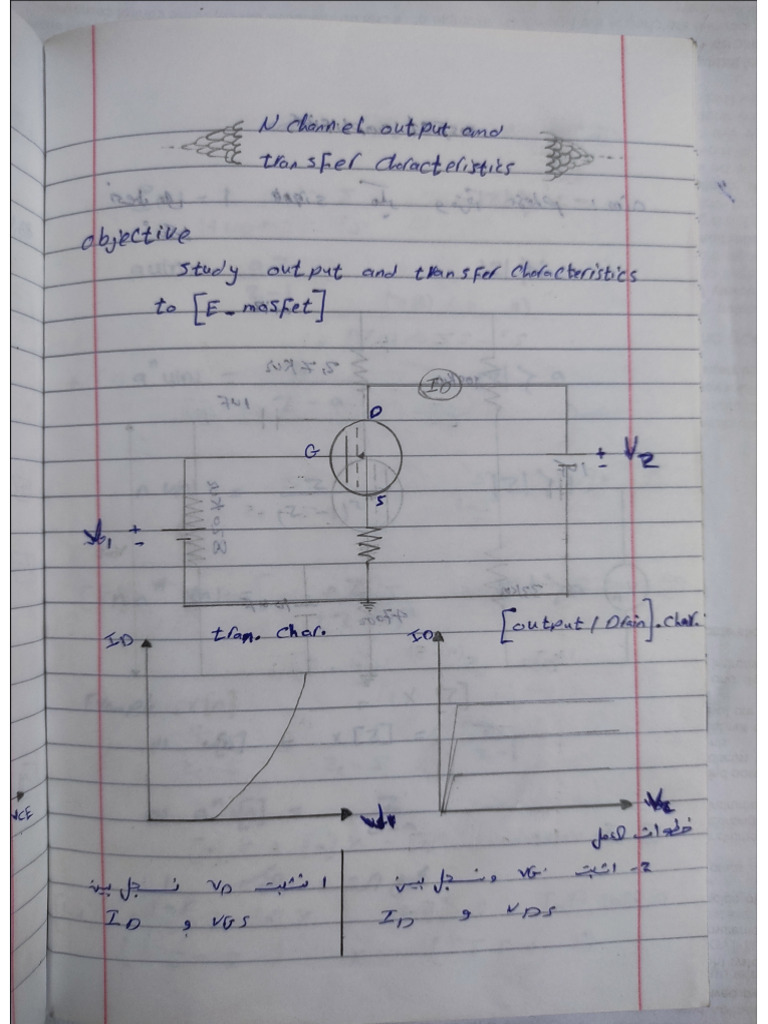 N channel output and
transfer characteristics
objective
study output and transfer characteristics
to [E-mosfet]
ID
D
G
S
+
-
V1
+
-
V2
ID
tran. char.
ID
[output / Drain]. char.
VCE
خطوات العمل
1 نثبت VD نسجل بين
ID و VGS
2- نثبت VG ونسجل بين
ID و VDS